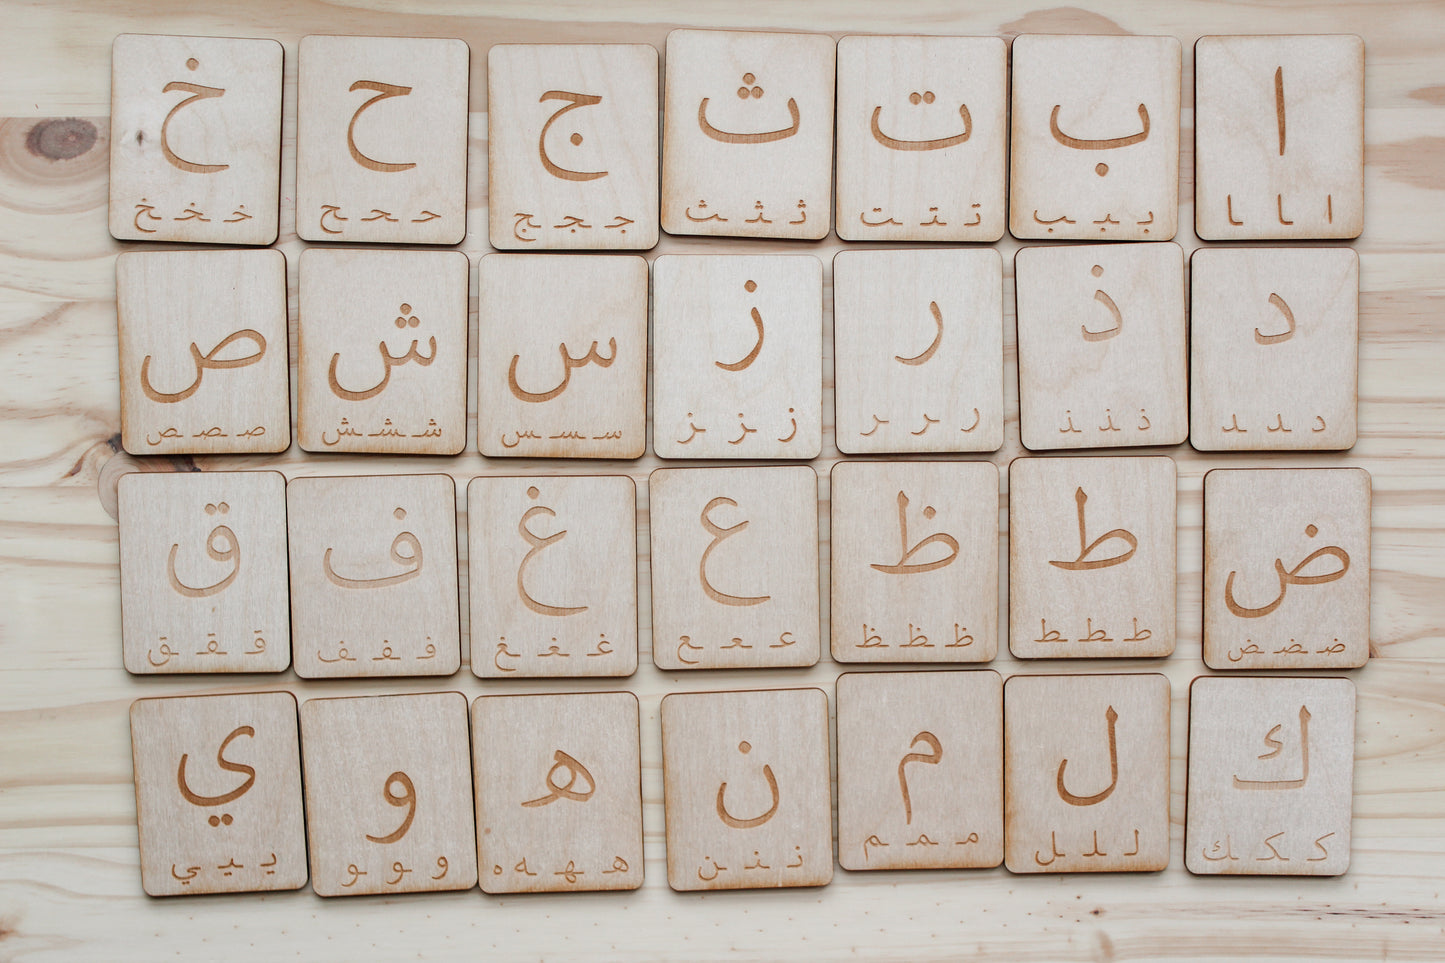 ا ب ت ث ج ح خ
ا ـا ـا بـ ـبـ ـب تـ ـتـ ـت ثـ ـثـ ـث جـ ـجـ ـج حـ ـحـ ـح خـ ـخـ ـخ
د ذ ر ز س ش ص
د ـد ـد ذ ـذ ـذ ر ـر ـر ز ـز ـز سـ ـسـ ـس شـ ـشـ ـش صـ ـصـ ـص
ض ط ظ ع غ ف ق
ضـ ـضـ ـض طـ ـطـ ـط ظـ ـظـ ـظ عـ ـعـ ـع غـ ـغـ ـغ فـ ـفـ ـف قـ ـقـ ـق
ك ل م ن هـ و ي
كـ ـكـ ـك لـ ـلـ ـل مـ ـمـ ـم نـ ـنـ ـن هـ ـهـ ـه ه و ـو ـو يـ ـيـ ـي